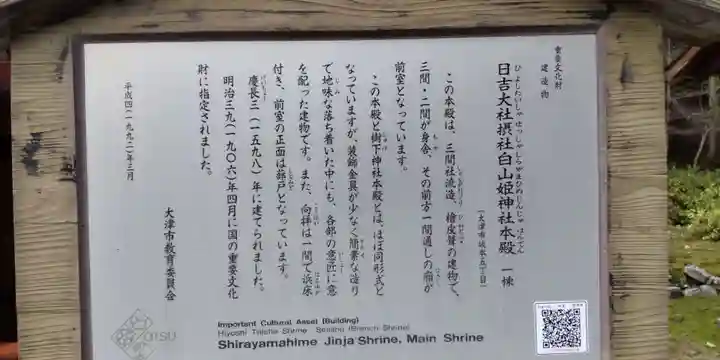 重要文化財
建造物
日吉大社摂社白山姫神社本殿 一棟
ひよしたいしゃせっしゃしらやまひめじんじゃほんでん
(大津市坂本五丁目)
この本殿は、三間社流造、檜皮葺の建物で、
三間・二間が身舎、その前方一間通しの廂が
前室となっています。
この本殿と樹下神社本殿とは、ほぼ同形式と
なっていますが、装飾金具が少なく簡素な造り
で地味な落ち着いた中にも、各部の意匠に意
を配った建物です。また、向拝は一間で浜床
付き、前室の正面は蔀戸となっています。
慶長三(一五九八)年に建てられました。
明治三九(一九〇六)年四月に国の重要文化
財に指定されました。
大津市教育委員会
平成四(一九九二)年三月
Important Cultural Asset (Building)
Hiyoshi Taisha Shrine Sessha (Branch Shrine)
Shirayamahime Jinja Shrine, Main Shrine